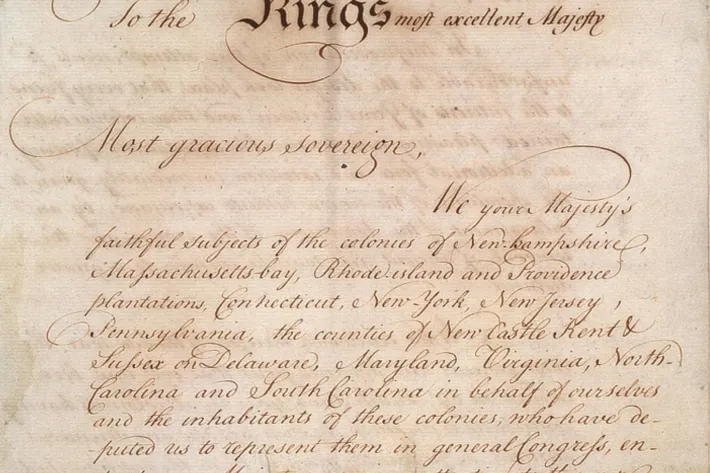 To the Kings most excellent Majesty
Most gracious sovereign,
We your Majesty's
faithful subjects of the colonies of New-hampshire,
Massachusetts-bay, Rhode-island and Providence
plantations, Connecticut, New-York, New Jersey,
Pennsylvania, the counties of New Castle Kent &
Sussex on Delaware, Maryland, Virginia, North-
Carolina and South Carolina in behalf of ourselves
and the inhabitants of these colonies, who have de-
puted us to represent them in general Congress, en-